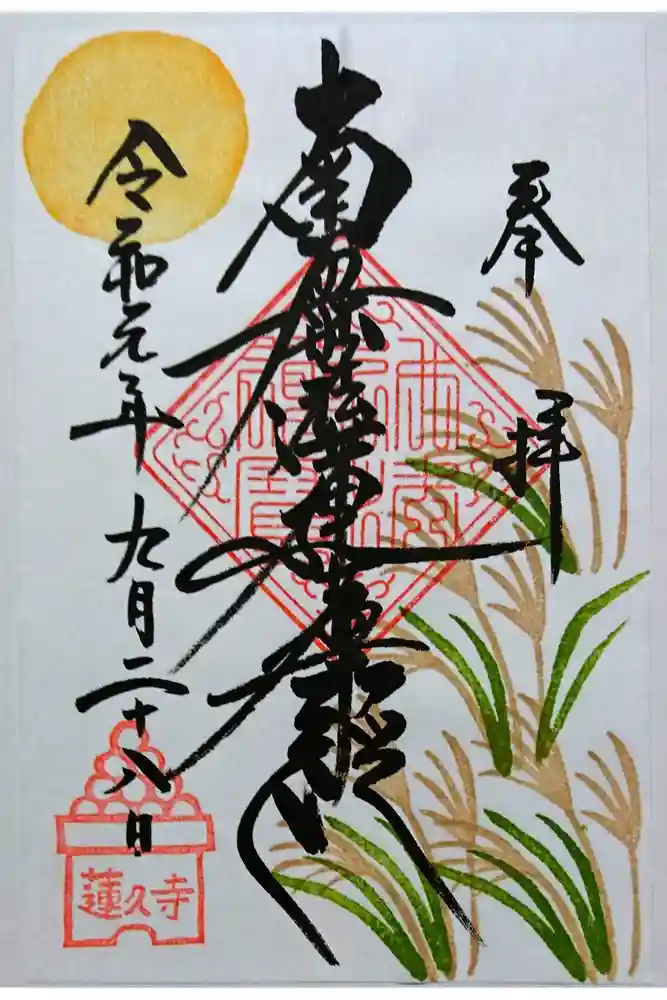 奉拝
南無妙法蓮華経
令和元年九月二十八日
蓮久寺